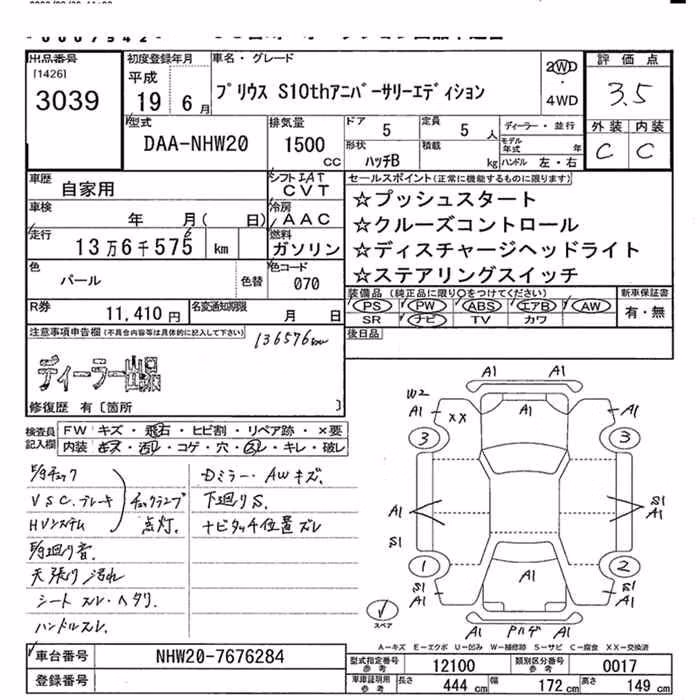 出品番号
[1426]
3039
初度登録年月
平成
19 6月
車名・グレード
プリウス S10thアニバーサリーエディション
2WD
・
4WD
評価点
3.5
外装 内装
C C
型式
DAA-NHW20
排気量
1500
cc
ドア
5
定員
5 人
ディーラー・並行
形状
ハッチB
積載
kg
モデル年式 年
ハンドル 左・右
車歴
自家用
シフト IAT
CVT
車検
年 月( 日)
冷房
AAC
走行
13万6千575 km
6
燃料
ガソリン
色
パール
色替
色コード
070
R券
11,410円
名変通知期限
月 日
セールスポイント(正常に機能するものに限ります)
☆プッシュスタート
☆クルーズコントロール
☆ディスチャージヘッドライト
☆ステアリングスイッチ
装備品(純正品に限り○をつけてください)
PS PW ABS エアB AW
SR ナビ TV カワ
新車保証書
有・無
後日品
注意事項申告欄(不具合内容等は具体的に記入して下さい)
136576km
ディーラー
修復歴 有〔箇所 〕
検査員
記入欄
FW キズ・飛石・ヒビ割・リペア跡・×要
内装 キズ・汚レ・コゲ・穴・スレ・キレ・破レ
VSC.ブレーキ
HVシステム
チェックランプ
点灯.
天張り汚れ
シート スレ・ヘタリ.
ハンドルスレ.
Dミラー・AWキズ.
下廻りS.
ナビタッチ位置ズレ
A1 A1
W2
A1
XX
A1
A1
3 3
A1
S1
A1
S1
1 2
A1
S1
A1
S1
A1
スペア
A1 A1
A-キズ E-エクボ U-凹み W-補修跡 S-サビ C-腐食 XX-交換済
車台番号
NHW20-7676284
登録番号
型式指定番号
参考
12100
類別区分番号
参考
0017
車庫証明用
参考
長さ 444 cm 幅 172 cm 高さ 149 cm